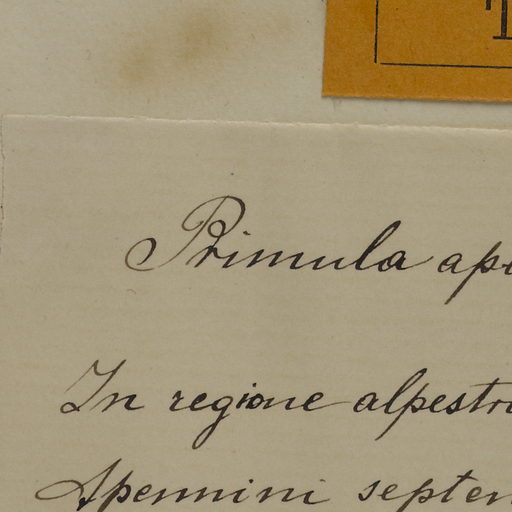 T
Primula ape
In regione alpestri
Apennini septen